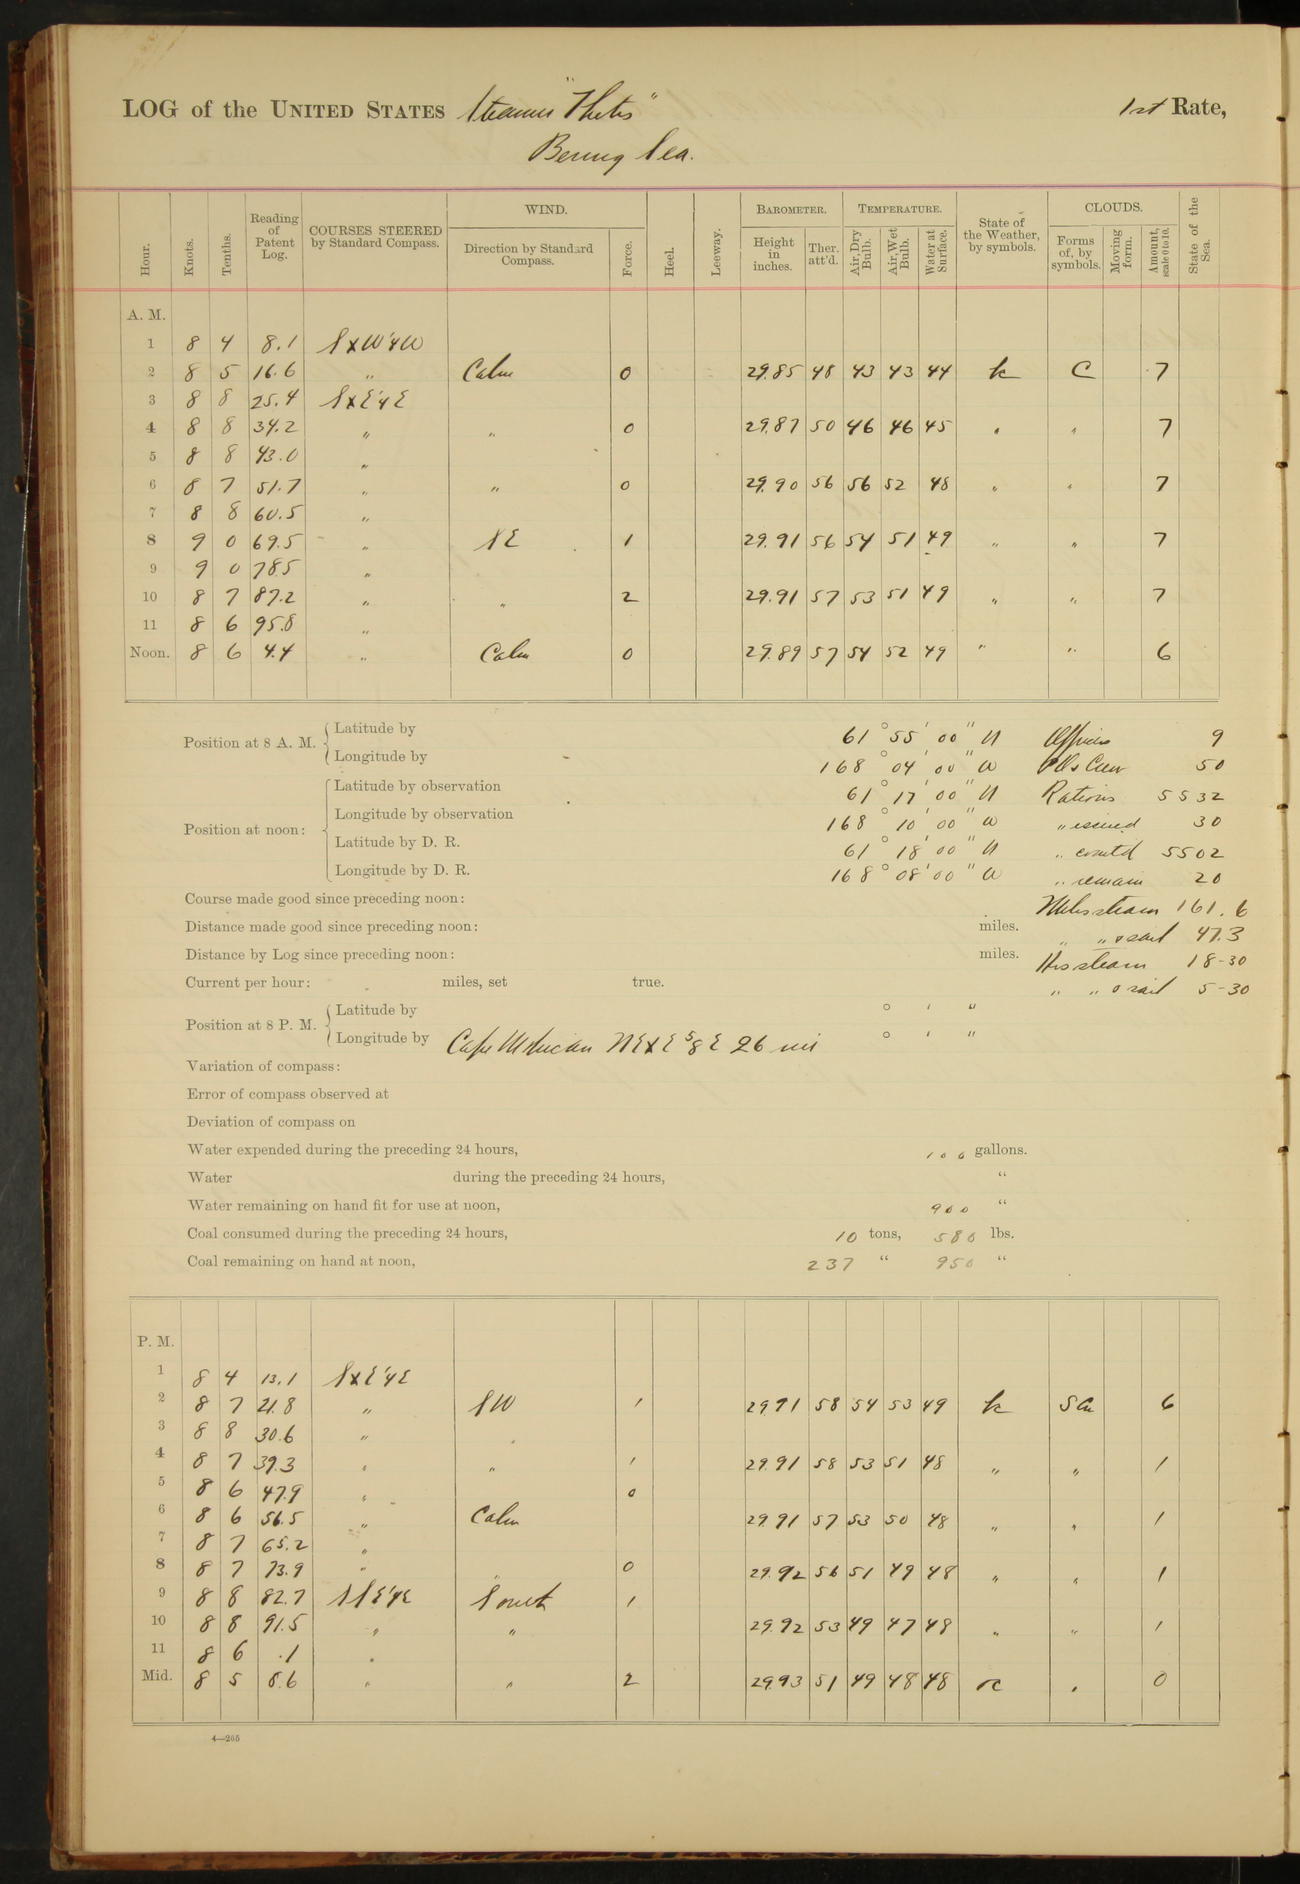 LOG of the UNITED STATES Steamer "Thetis" 1st Rate,
Bering Sea.
Hour. Knots. Tenths. Reading of Patent Log. COURSES STEERED by Standard Compass. WIND. Direction by Standard Compass. Force. Heel. Leeway. BAROMETER. Height in inches. Ther. att'd. TEMPERATURE. Air, Dry Bulb. Air, Wet Bulb. Water at Surface. State of the Weather, by symbols. CLOUDS. Forms of, by symbols. Moving form. Amount, scale 0 to 10. State of the Sea.
A. M.
1 8 4 8.1 SxW¼W
2 8 5 16.6 " Calm 0 29.85 48 43 43 44 C 7
3 8 8 25.4 SxE¼E
4 8 8 34.2 " " 0 29.87 50 46 46 45 " " 7
5 8 8 43.0 "
6 8 7 51.7 " " 0 29.90 56 56 52 48 " " 7
7 8 8 60.5 "
8 9 0 69.5 " NE 1 29.91 56 54 51 49 " " 7
9 9 0 78.5 "
10 8 7 87.2 " " 2 29.91 57 53 51 49 " " 7
11 8 6 95.8 "
Noon. 8 6 4.4 " Calm 0 29.89 57 54 52 49 " " 6
Position at 8 A. M. Latitude by 61° 55' 00" N Officers 9
Longitude by 168° 04' 00" W Crew 50
Position at noon: Latitude by observation 61° 17' 00" N Rations 5532
Longitude by observation 168° 10' 00" W " issued 30
Latitude by D. R. 61° 18' 00" N " 5502
Longitude by D. R. 168° 08' 00" W " remain 20
Course made good since preceding noon: Miles steam 161.6
Distance made good since preceding noon: miles. " " & sail 47.3
Distance by Log since preceding noon: miles. Hrs steam 18-30
Current per hour: miles, set true. " " & sail 5-30
Position at 8 P. M. Latitude by ° ' "
Longitude by Cape Mohican NExE ⅝ E 26 mis ° ' "
Variation of compass:
Error of compass observed at
Deviation of compass on
Water expended during the preceding 24 hours, 100 gallons.
Water during the preceding 24 hours, "
Water remaining on hand fit for use at noon, 900 "
Coal consumed during the preceding 24 hours, 10 tons, 580 lbs.
Coal remaining on hand at noon, 237 " 950 "
P. M.
1 8 4 13.1 SxE¼E
2 8 7 21.8 " SW 1 29.91 58 54 53 49 S Cu 6
3 8 8 30.6 "
4 8 7 39.3 " " 1 29.91 58 53 51 48 " " 1
5 8 6 47.9 " 0
6 8 6 56.5 " Calm 29.91 57 53 50 48 " " 1
7 8 7 65.2 "
8 8 7 73.9 " " 0 29.92 56 51 49 48 " " 1
9 8 8 82.7 SSE¼E South 1
10 8 8 91.5 " " 29.92 53 49 47 48 " " 1
11 8 6 .1 "
Mid. 8 5 8.6 " " 2 29.93 51 49 48 48 " 0
4—205